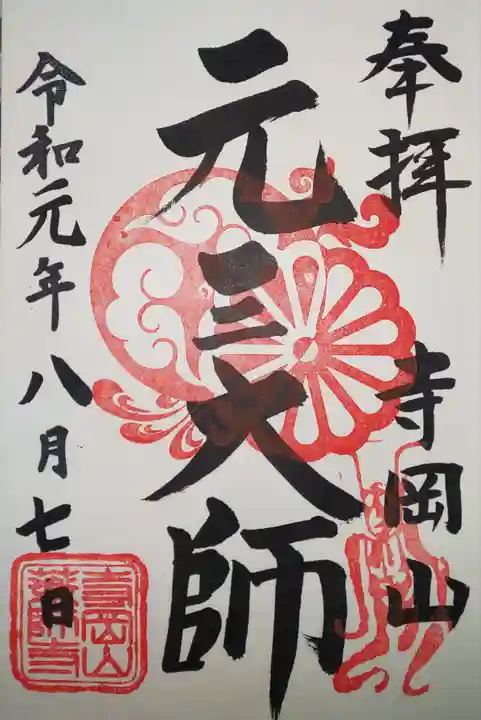 奉拝 寺岡山
元三大師
令和元年八月七日
寺岡山
薬師寺